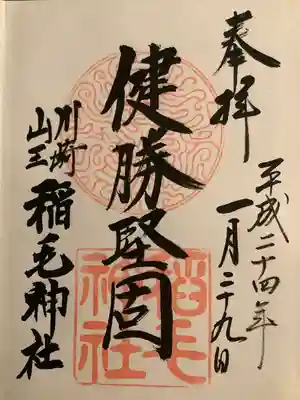 奉拝
平成二十四年
一月二十九日
健勝堅固
川崎
山王
稲毛神社
稲毛
神社